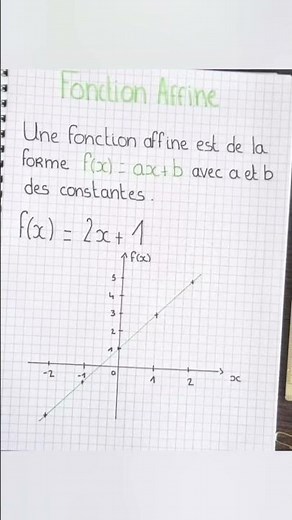 Fonction Affine
Une fonction affine est de la
forme f(x) = ax + b avec a et b
des constantes.
f(x) = 2x + 1
f(x)
5
4
3
2
1
-2 -1 0 1 2 x